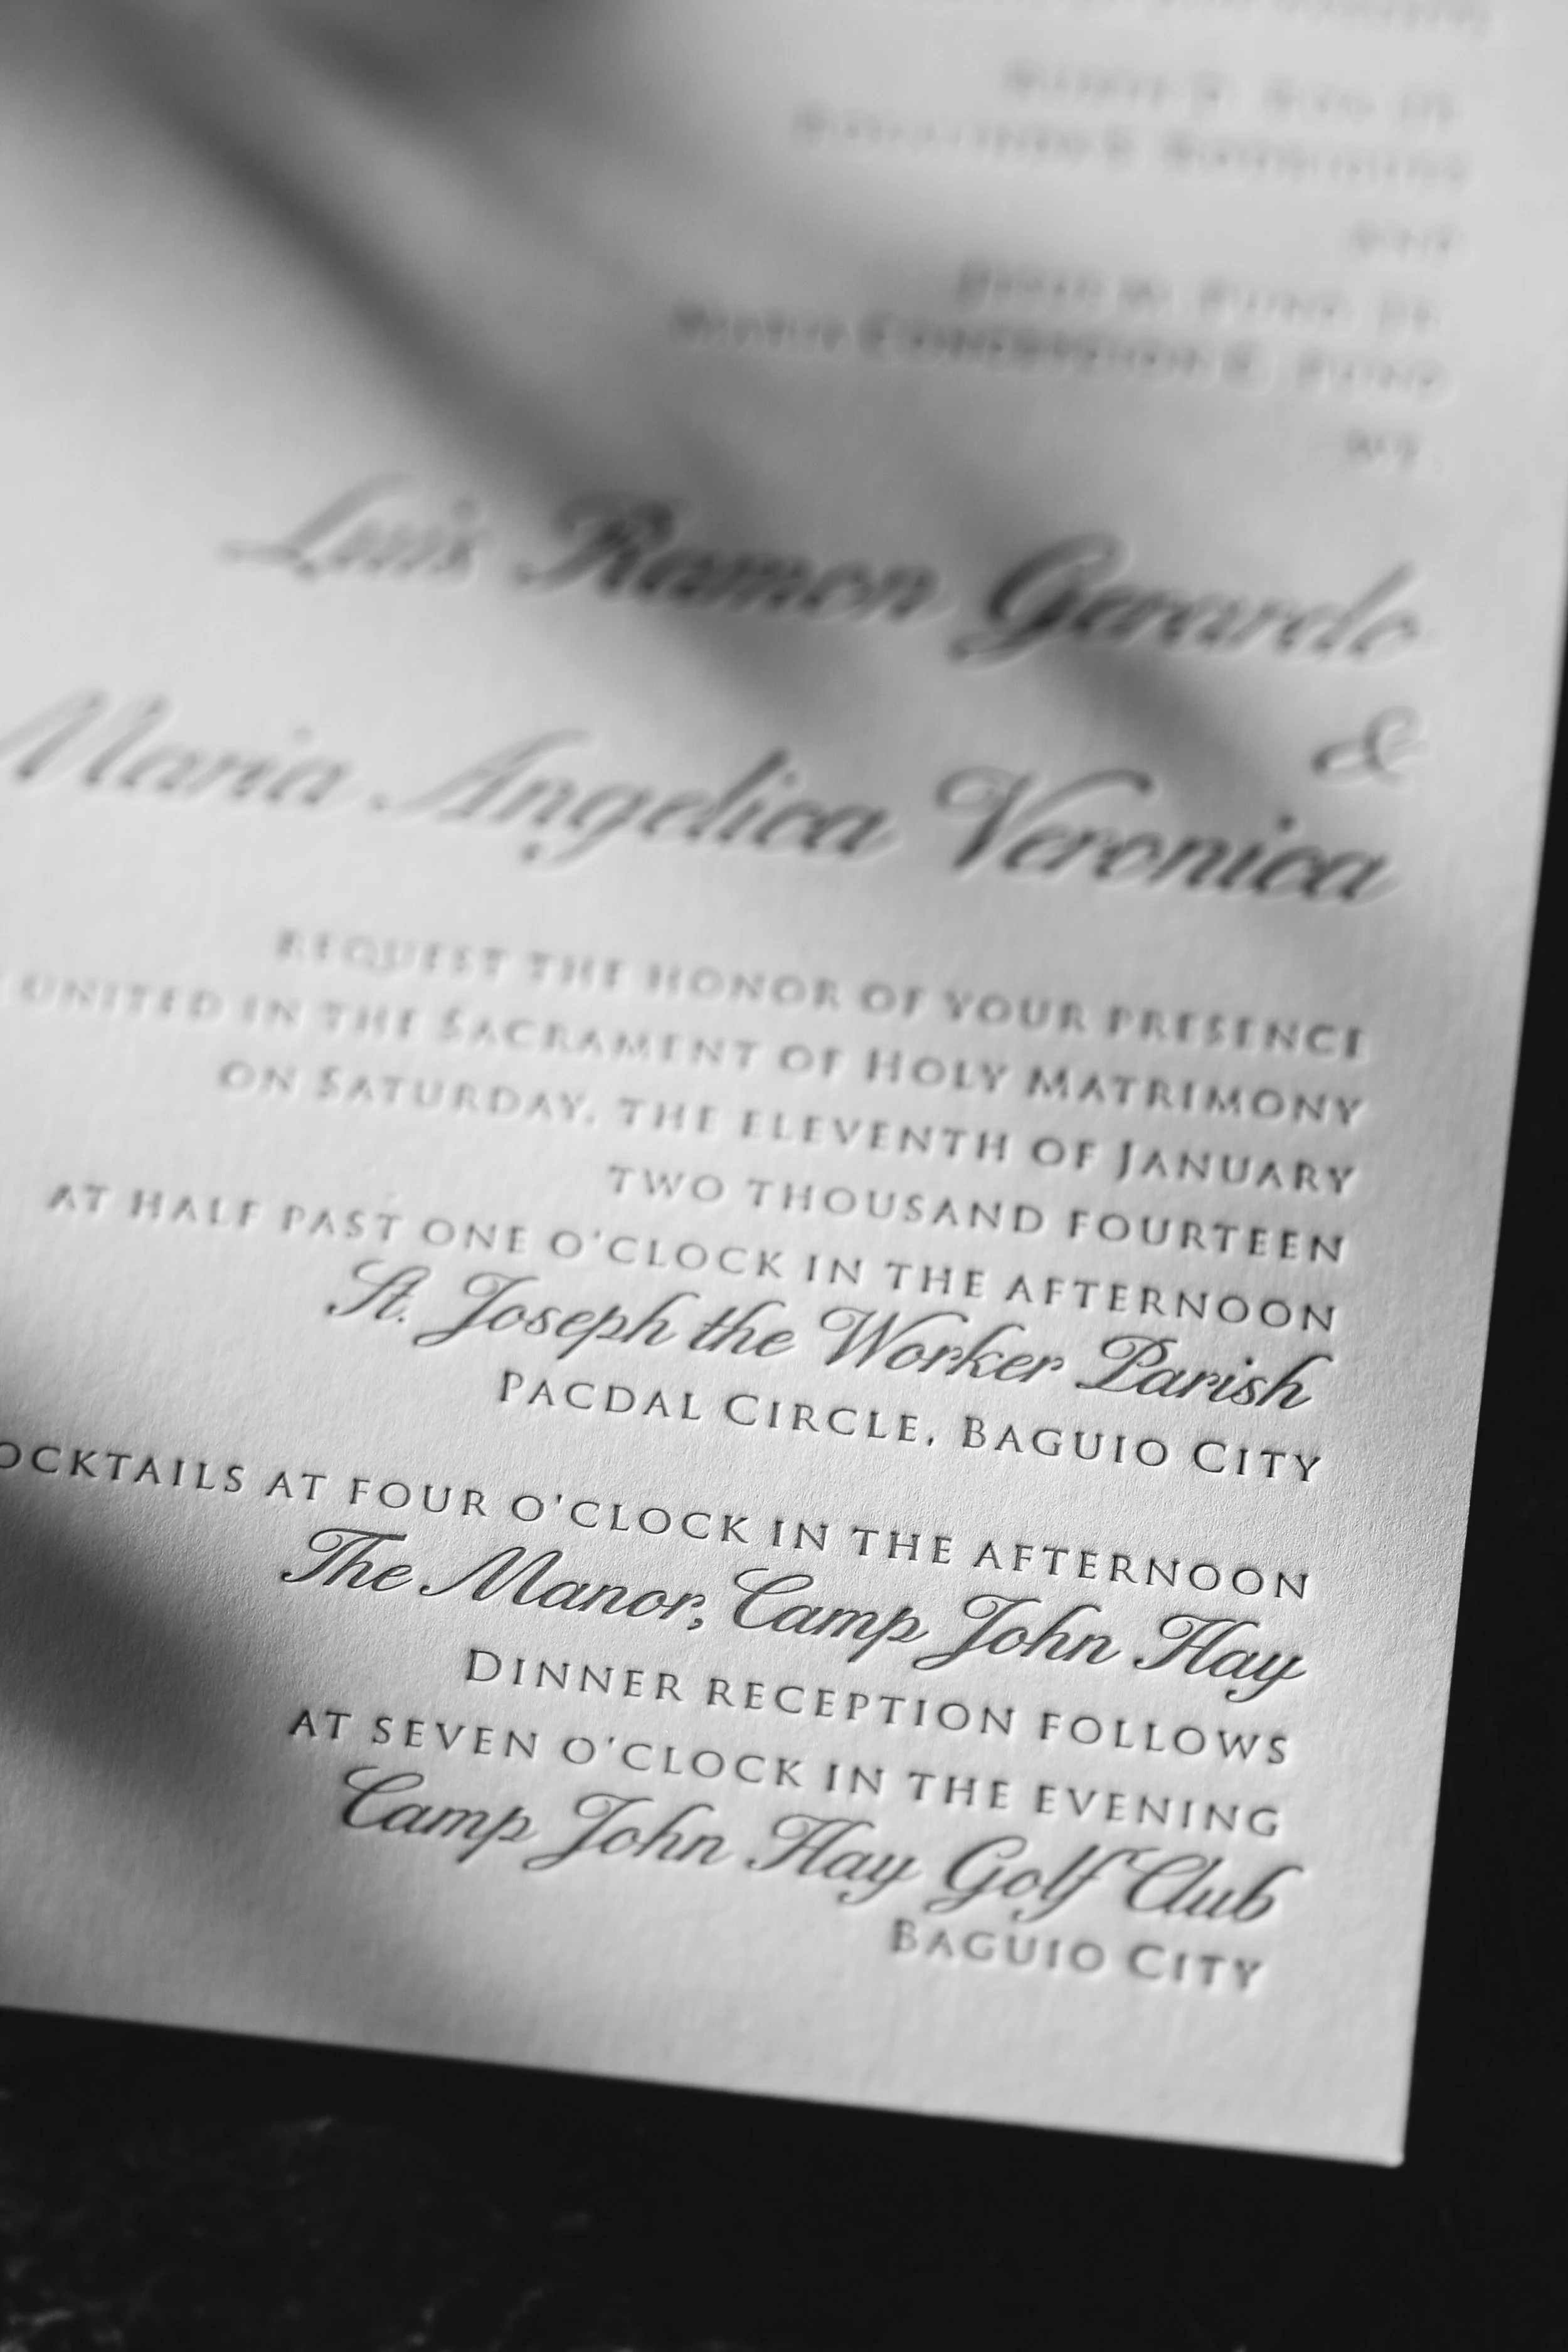 AND
WE,
Luis Ramon Gerardo
&
Maria Angelica Veronica
REQUEST THE HONOR OF YOUR PRESENCE
UNITED IN THE SACRAMENT OF HOLY MATRIMONY
ON SATURDAY, THE ELEVENTH OF JANUARY
TWO THOUSAND FOURTEEN
AT HALF PAST ONE O'CLOCK IN THE AFTERNOON
St. Joseph the Worker Parish
PACDAL CIRCLE, BAGUIO CITY
OCKTAILS AT FOUR O'CLOCK IN THE AFTERNOON
The Manor, Camp John Hay
DINNER RECEPTION FOLLOWS
AT SEVEN O'CLOCK IN THE EVENING
Camp John Hay Golf Club
BAGUIO CITY